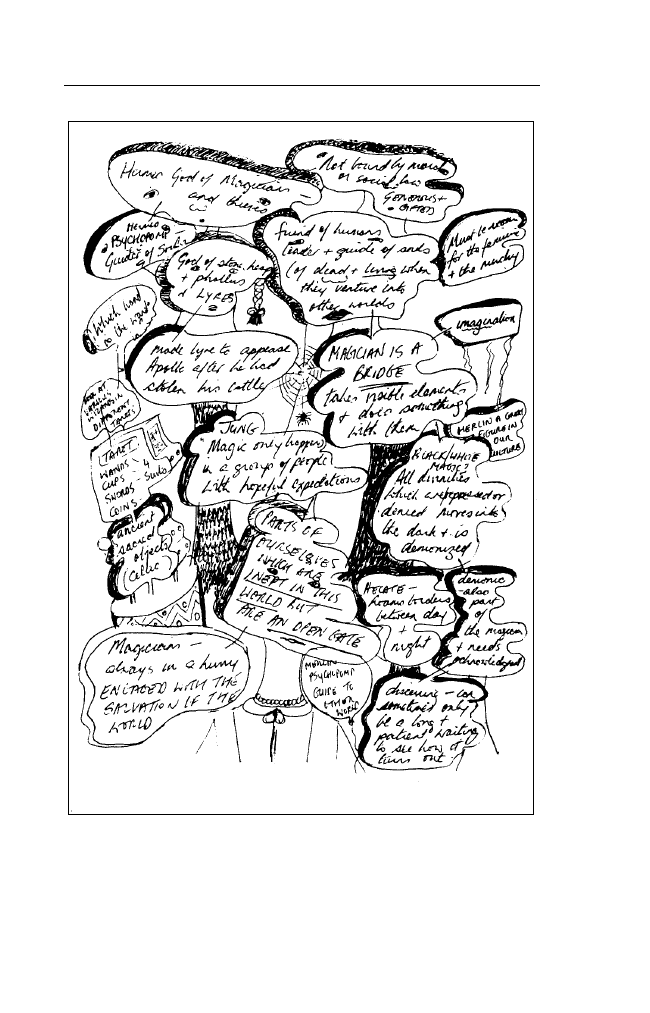 Humer God of Magicians –
and thieves
Not bound by moral
or social law
GENEROUS +
GIFTED
HERMES
PSYCHOPOMP –
Guider of Souls
God of stone heap
+ phallus
+ LYRES
friend of humans
leader + guide of souls
(of dead + living when
they venture into
other worlds
Must be room
for the
+ the
Which hand
is the
imagination
made lyre to appease
Apollo after he had
stolen his cattle
MAGICIAN IS A
BRIDGE
takes visible elements
+ does something
with them
DIFFERENT
MERLIN A GREAT
FIGURE IN
OUR
CULTURE
TAROT
WANDS –
CUPS – 4
SWORDS – Suits
COINS –
JUNG
"Magic only happens
in a group of people
with hopeful expectations
BLACK/WHITE
MAGIC?
All divinities
which are repressed or
denied moves into
the dark + is
demonized
ancient
sacred
objects
Celtic
PARTS OF
OURSELVES
WHICH ARE
INEPT IN THIS
WORLD BUT
ARE AN OPEN GATE
HECATE –
roams borders
between day
+
night
demonic
also
part
of
the magician
+ needs
acknowledged
Magicians –
always in a hurry
ENGAGED WITH THE
SALVATION OF THE
WORLD
MERLIN
PSYCHOPOMP
GUIDE TO
OTHER
WORLD
discerning – can
sometimes only
be a long +
patient waiting
to see how it
turns out –